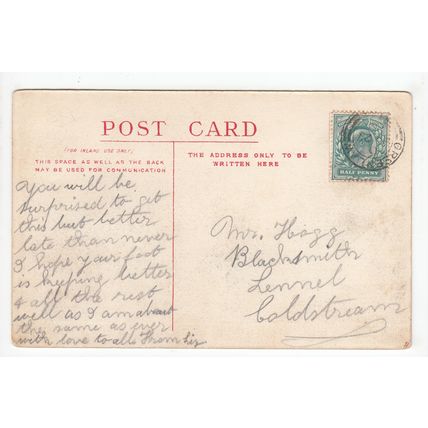 POST CARD
(FOR INLAND USE ONLY)
THIS SPACE AS WELL AS THE BACK
MAY BE USED FOR COMMUNICATION
THE ADDRESS ONLY TO BE
WRITTEN HERE
HALF PENNY
You will be
surprised to get
this but better
late than never
I hope your foot
is keeping better
& all the rest
well as I am about
the same as ever
with love to all from Liz
Mr. Hogg
Blacksmith
Lennel
Coldstream